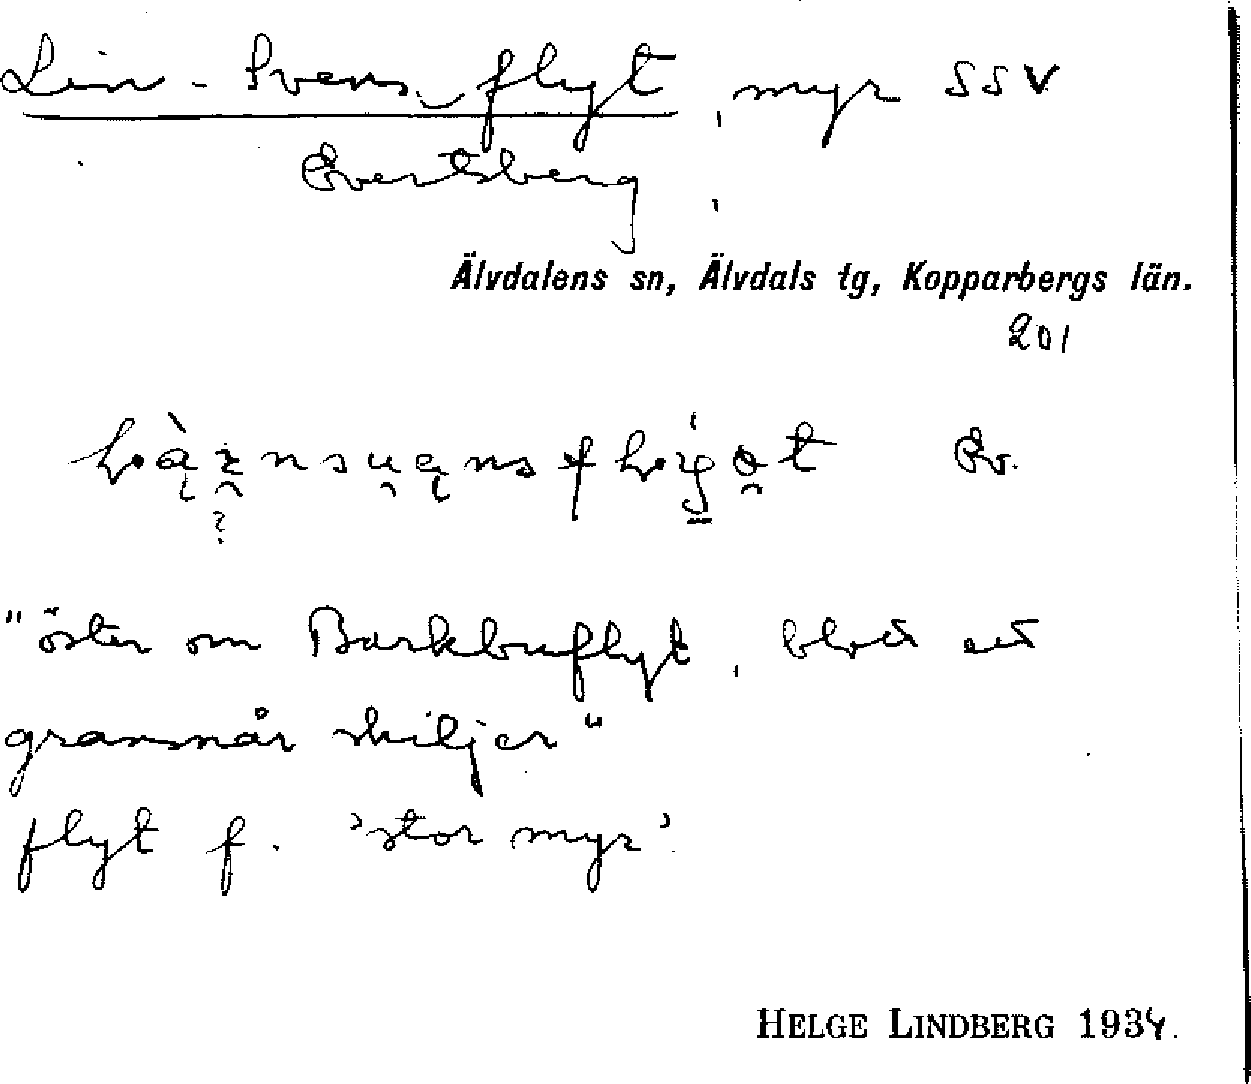 Lin-Svens flyt, myr SSV
Evertsberg,
Älvdalens sn, Älvdals tg, Kopparbergs län.
201
Ev.
"öster om Barkbuflyt, blott ett
grannsnår skiljer"
flyt f. 'stor myr'.
HELGE LINDBERG 1934.